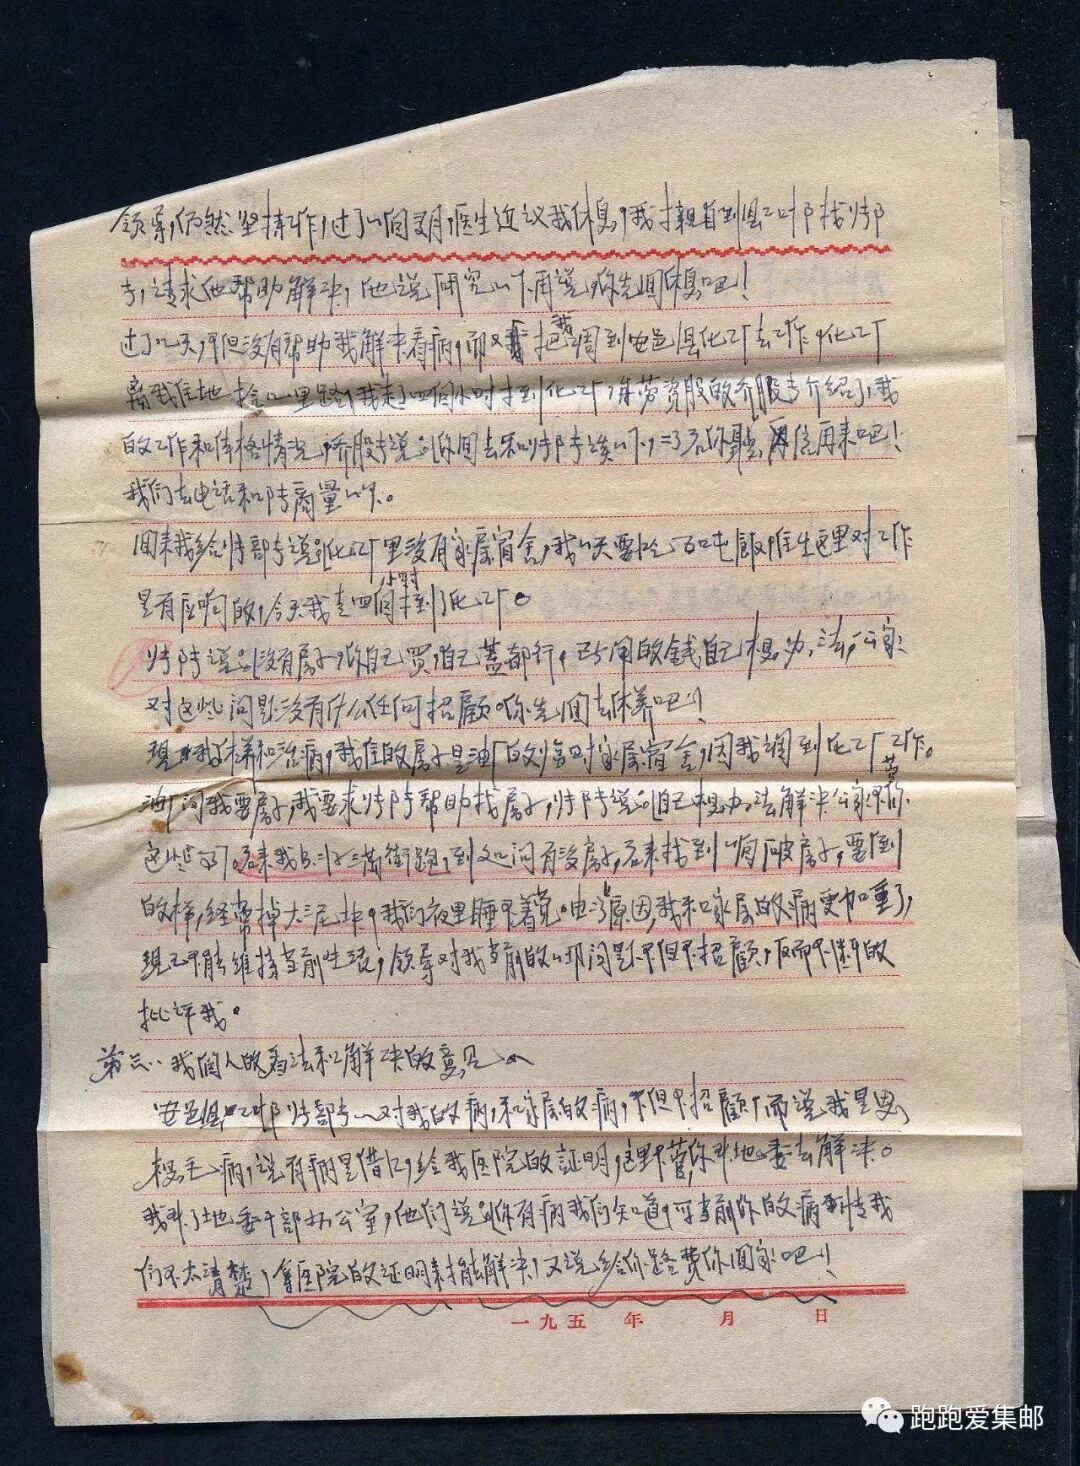 领导,仍然坚持工作,过了一个多月,医生建议我休息,我才亲自到县工业部找特部
专,请求他帮助解决,他说研究一下再说,你先回休息吧!
过了几天,不但没有帮助我解决看病,而又把我调到安邑县化工厂去工作,化工厂
离我住地拾几里路,我走了四个小时才到化工厂,有劳资股的乔股专介绍了,我
的工作和体格情况,乔股专说:你回去和特部专谈一下,二了后你听,再信再来吧!
我们去电话和部专商量一下。
回来我给特部专说:化工厂里没有家属宿舍,我一天要吃五吨饭,住在这里对工作
是有应响的,今天我走四个小时才到了化工厂。
特部专说:没有房子,你自己买,自己盖都行,所用的钱自己想办法,公家
对这些问题没有什么任何招顾。你先回去休养吧!
现我休养和治病,我住的房子是油厂的家属宿舍,因我调到化工厂工作。
油厂问我要房子,我要求特部专帮助找房子,特部专说:自己想办法解决公家不管你
这些事的。后来我满街跑,到处问有没房子,后来找到一间破房子,要倒
的样,经常掉大泥块,我们夜里睡不着觉。由于原因,我和家属的病更加重了,
现已不能维持当前生活,领导对我当前的一切问题不但不招顾,反而不断的
批评我。
第三、我个人的看法和解决的意见
安邑县工业部特部专对我的病,和家属的病,不但不招顾,而说我是思
想毛病,说有病是借口,给我医院的证明,这里不管,你来地委去解决。
我来了地委干部办公室,他们说:你有病我们知道,可当前你的病情我
们不太清楚,拿医院的证明来才能解决,又说给你路费你回家吧!
一九五 年 月 日
跑跑爱集邮